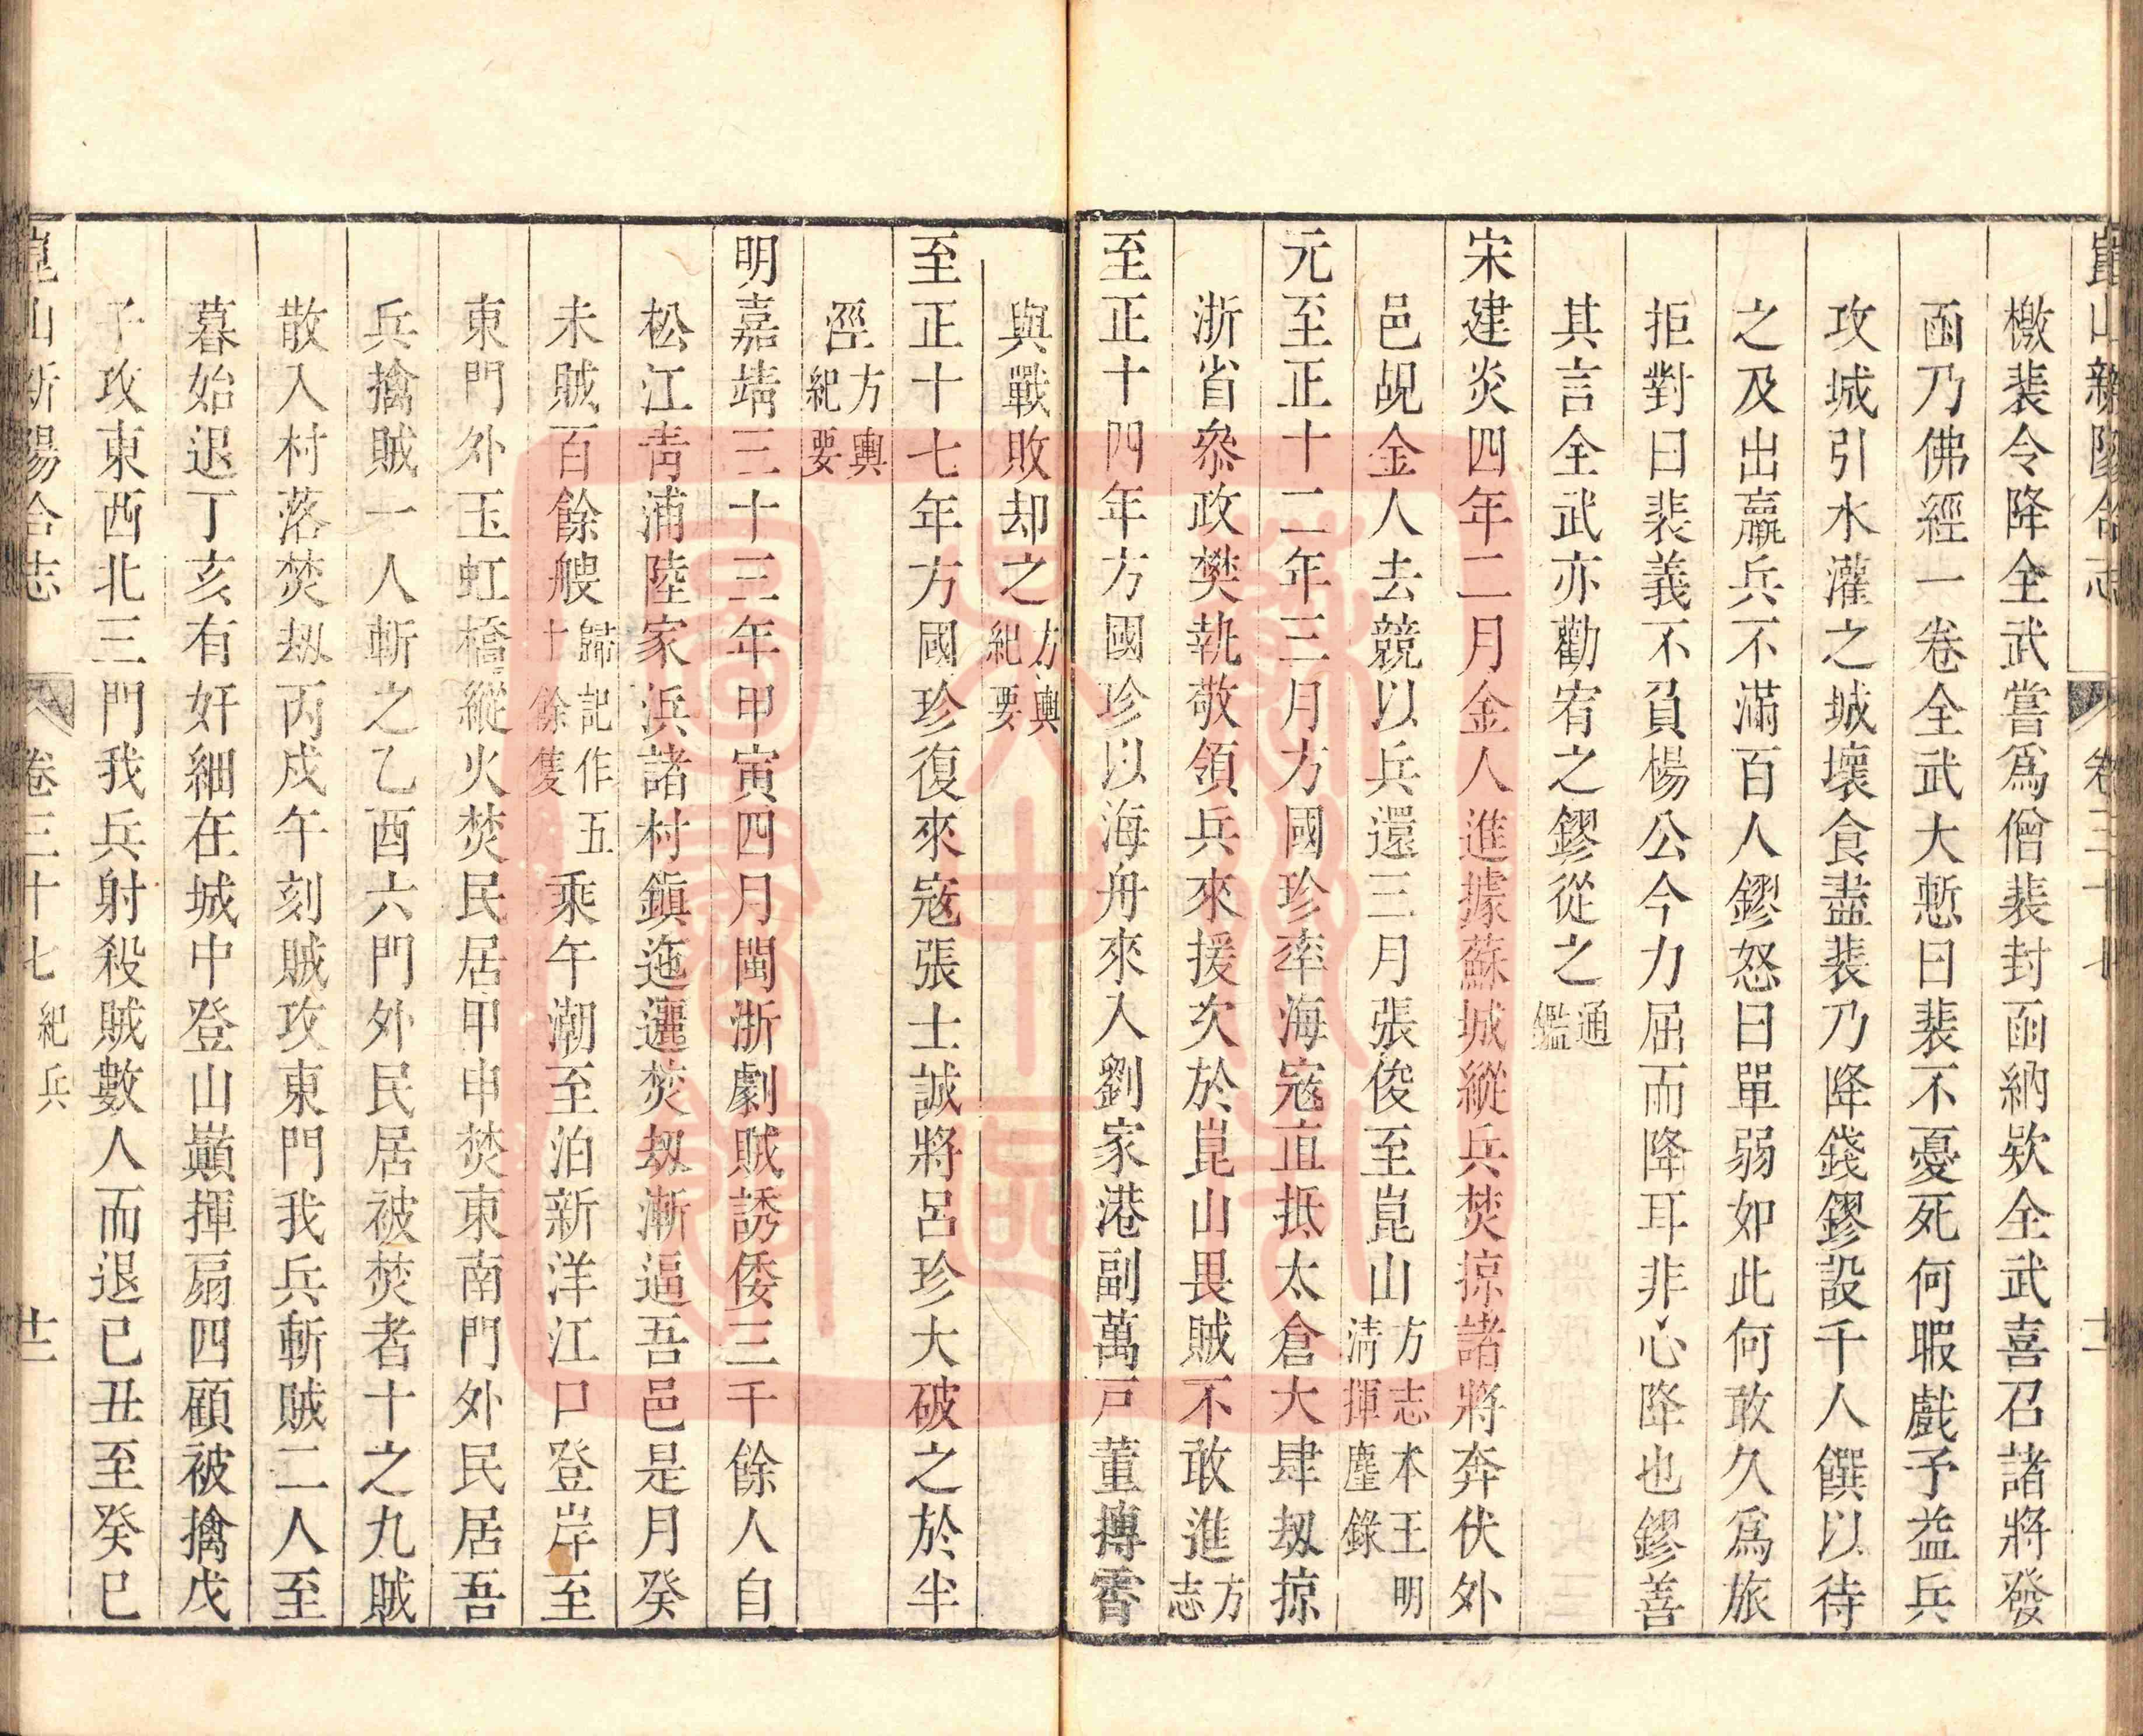 崑山新陽合志 卷三十七
檄裴令降全武嘗爲僧裴封函納欵全武喜召諸將發
函乃佛經一卷全武大慙曰裴不憂死何暇戲予益兵
攻城引水灌之城壞食盡裴乃降錢鏐設千人饌以待
之及出羸兵不滿百人鏐怒曰單弱如此何敢久爲旅
拒對曰裴義不負楊公今力屈而降耳非心降也鏐善
其言全武亦勸宥之鏐從之通鑑
宋建炎四年二月金人進據蘇城縱兵焚掠諸將奔伏外
邑覘金人去競以兵還三月張俊至崑山方志本王明清揮麈錄
元至正十二年三月方國珍率海寇直抵太倉大肆刼掠
浙省叅政樊執敬領兵來援次於崑山畏賊不敢進方志
至正十四年方國珍以海舟來入劉家港副萬戸董摶霄
與戰敗却之方輿紀要
至正十七年方國珍復來寇張士誠將呂珍大破之於半
涇方輿紀要
明嘉靖三十三年甲寅四月閩浙劇賊誘倭三千餘人自
松江青浦陸家浜諸村鎮迤邐焚刼漸逼吾邑是月癸
未賊百餘艘歸記作五十餘隻乘午潮至泊新洋江口登岸至
東門外玉虹橋縱火焚民居甲申焚東南門外民居吾
兵擒賊一人斬之乙酉六門外民居被焚者十之九賊
散入村落焚刼丙戌午刻賊攻東門我兵斬賊二人至
暮始退丁亥有奸細在城中登山巓揮扇四顧被擒戊
子攻東西北三門我兵射殺賊數人而退己丑至癸巳
崑山新陽合志 卷三十七 紀兵